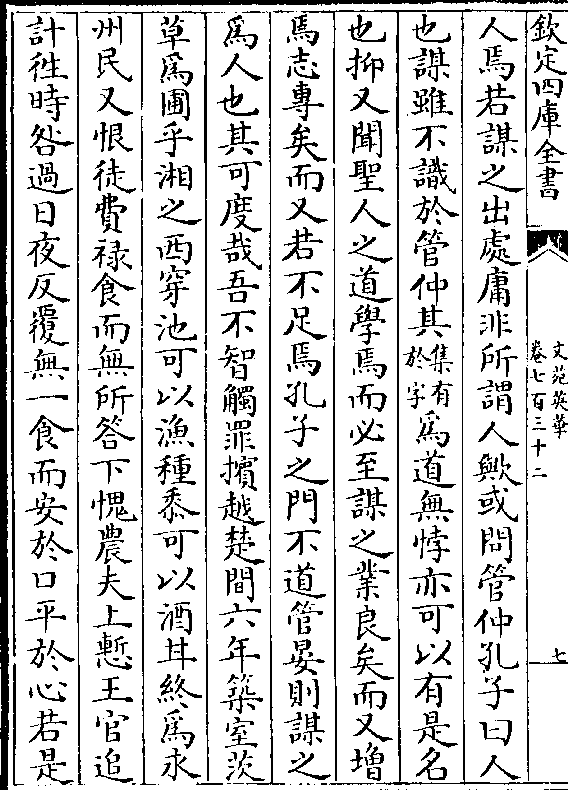 欽定四庫全書
文苑英華
卷七百三十二
七
人焉若謀之出處庸非所謂人歟或問管仲孔子曰人
也謀雖不識於管仲其集有於字爲道無悖亦可以有是名
也抑又聞聖人之道學焉而必至謀之業良矣而又增
焉志專矣而又若不足焉孔子之門不道管晏則謀之
爲人也其可度哉吾不智觸罪擯越楚間六年築室茨
草爲圃乎湘之西穿池可以漁種黍可以酒甘終爲永
州民又恨徒費禄食而無所答下愧農夫上慙王官追
計徃時咎過日夜反覆無一食而安於口平於心若是